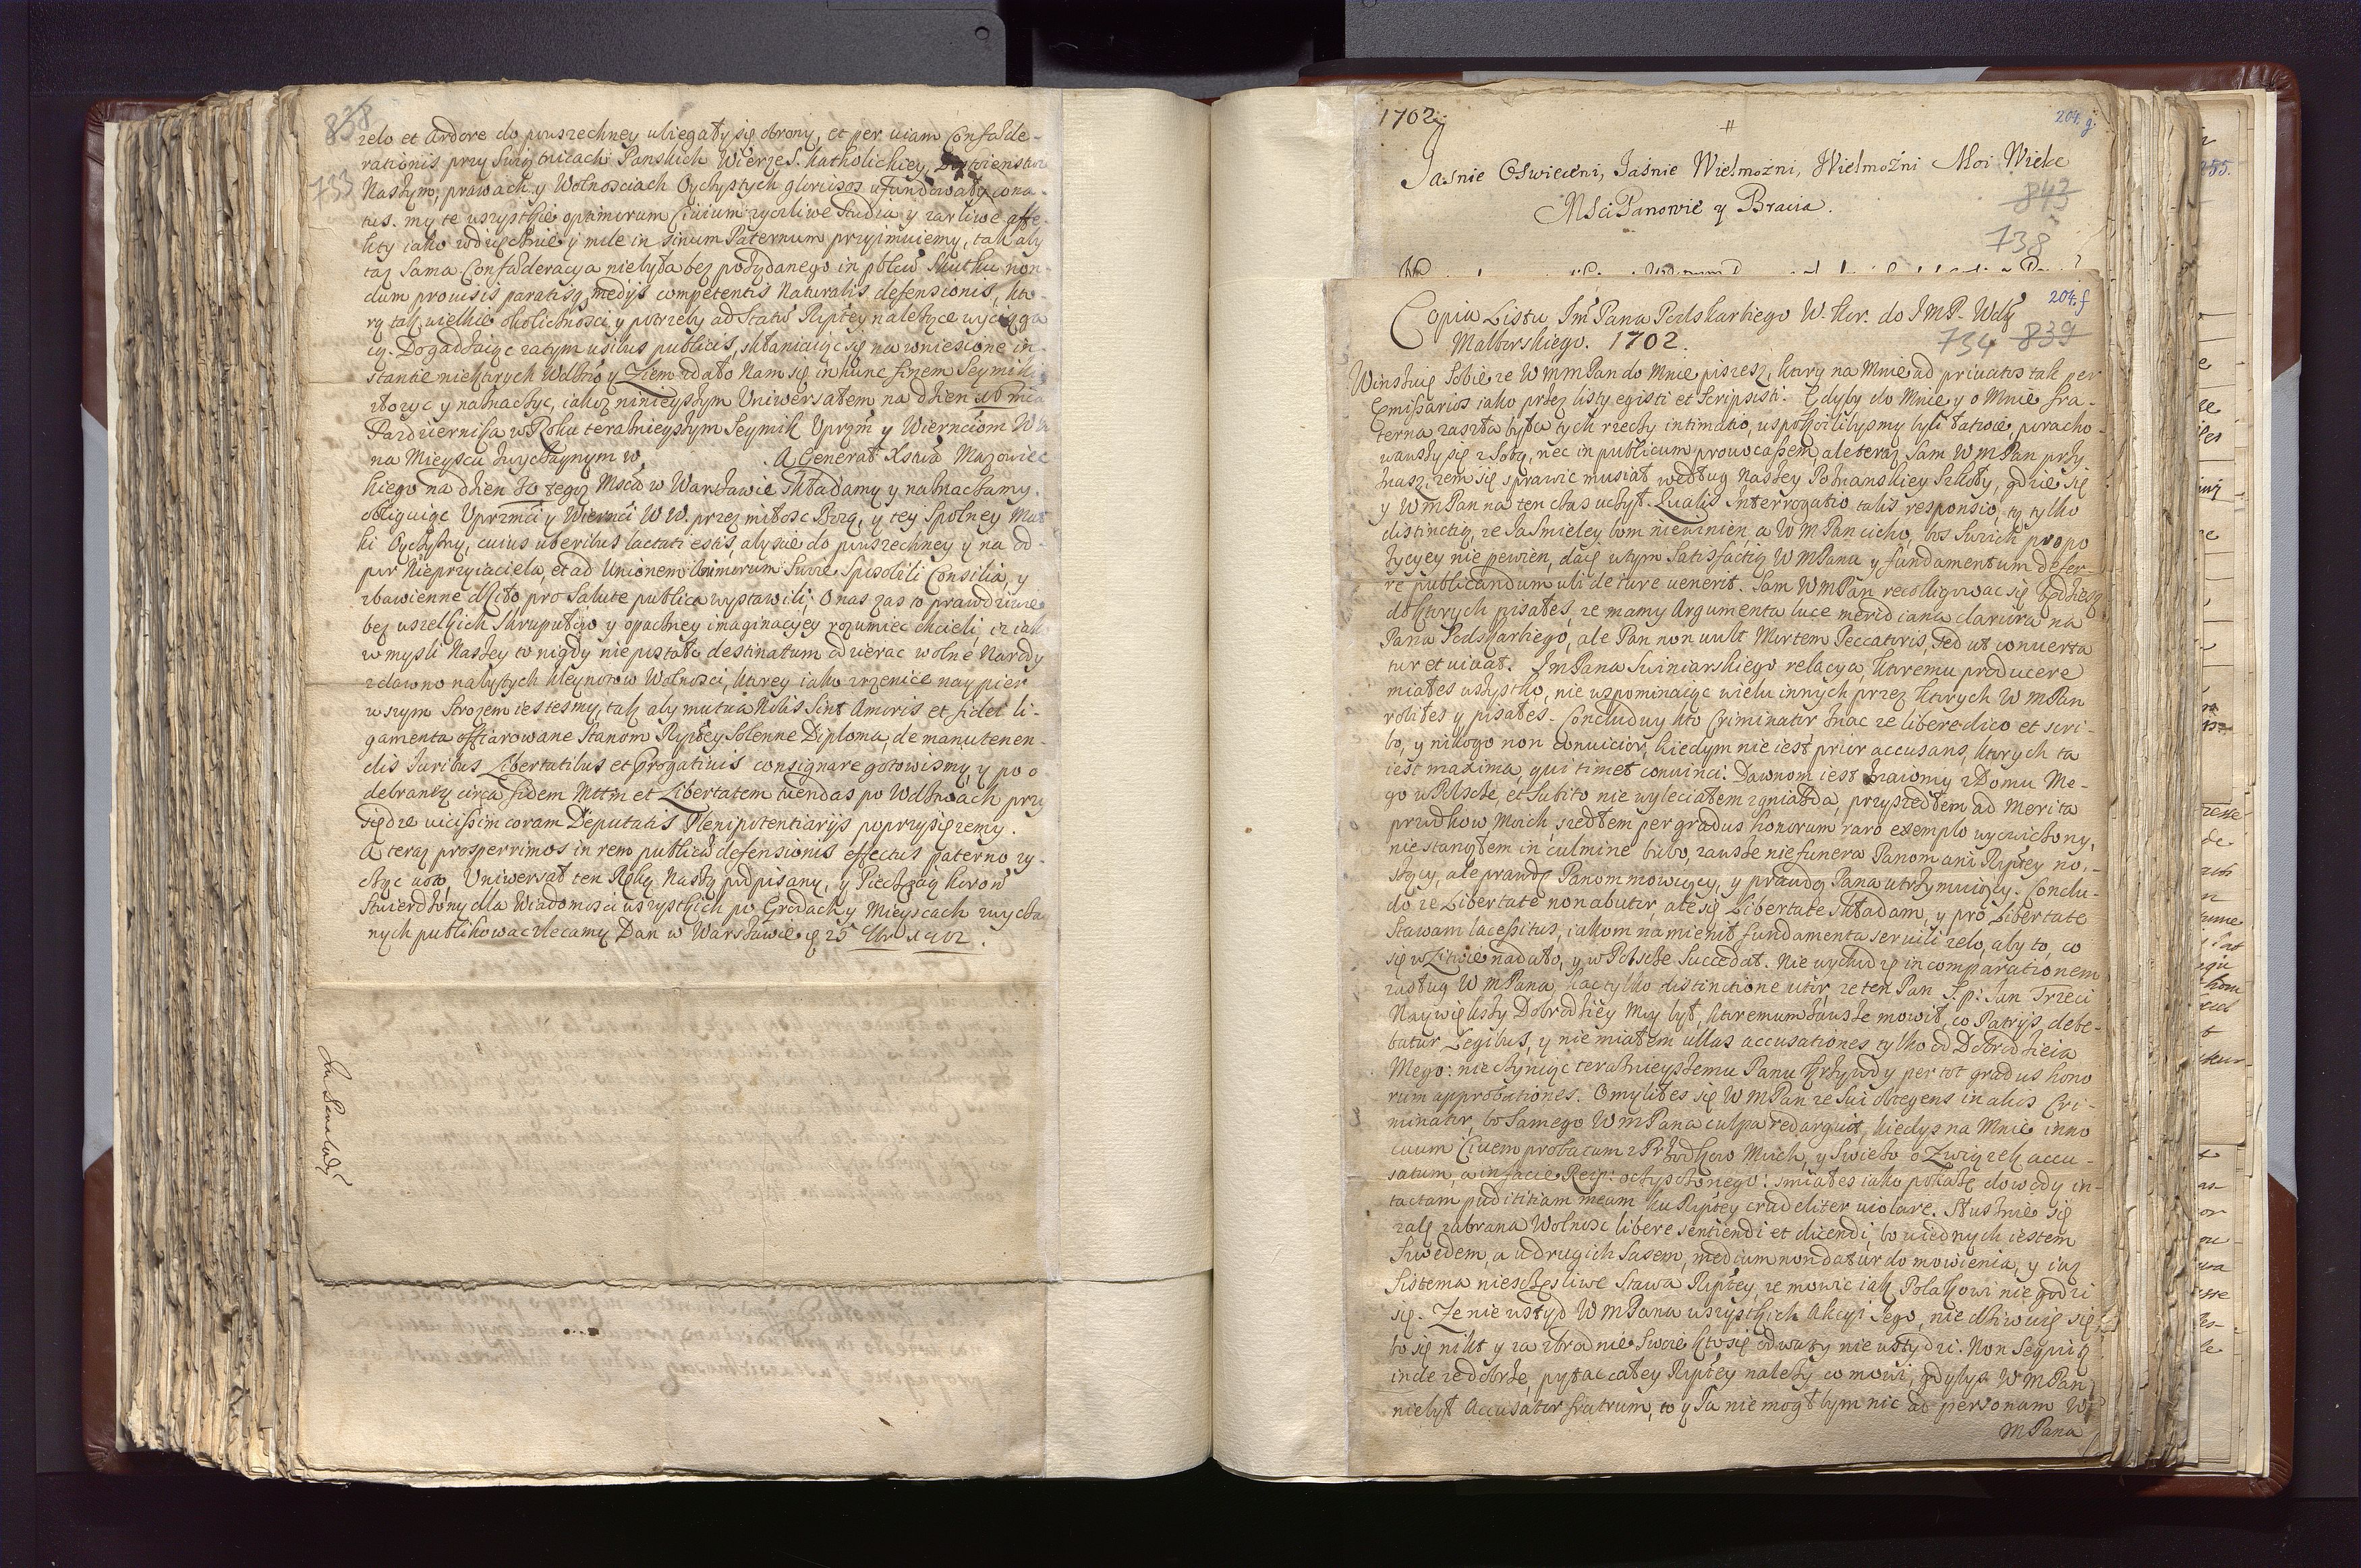 838
zelo et Ardore do powszechney ubiegały się obrony, et per uiam Confœde-
rationis przy Swiątnicach Panskich Wierze S. Katholickiey,
Naszym, prawach y Wolnosciach Oyczystych gloriosos ufundowały cona-
733
tus. my te wszystkie optimorum Ciuium życzliwe Studia y zarliwe affe-
kty iako wdzięcznie y mile in sinum Paternum przyimuiemy, tak aby
taż Sama Confœderacya niebyła bez pożądanego in publicum Skutku non-
dum prouisis paratisq medijs competentis Naturalis defensionis, kto-
rą tak wielkie okolicznosci y potrzeby ad Statum Rzptey należące wyciąga
ią. Dogadzaiąc zatym usibus publicis, skłaniaiąc się na wniesione in-
stantie niektorych Wdztw y Ziem zdało Nam się in hunc finem Seymik
złozyc y naznaczyc, iakoz ninieyszym Uniwersałem na dzien 16 mca
Pazdziernika w Roku teraznieyszym Seymik Uprzm y Wiernciom WW
na Mieyscu zwyczaynym w . A Generał Xstwa Mazowiec
kiego na dzien tegoz Msca w Warszawie składamy y naznaczamy.
obliguiąc Uprzmci y Wiernci WW. przez miłosc Bozą, y tey Spolney Mat
ki Oyczyzny, cuius uberibus lactati estis, abyscie do powszechney y na od-
por Nieprzyiaciela, et ad Unionem Animorum Swoie Sposobili Consilia, y
zbawienne dzieło pro Salute publica wystawili; O nas zas to prawdziwie
bez wszelkich Skrupułow y opaczney imaginacyey rozumiec chcieli, iz iako
w mysli Naszey to nigdy nie postało destinatum odzierac wolne Narody
z dawno nabytych kleynotow Wolnosci, ktorey iako zrzenice naypier
wszym Strozem iestesmy, tak aby mutua Nobis Sint Amoris et fidei li-
gamenta offiarowane Stanom Rzptey Solenne Diploma, de manutenen-
dis Iuribus Libertatibus et Prærogatiuis consignare gotowismy, y po o-
debraney circa fidem Nttm et Libertatem tuendas po Wdztwach przy
siędze uicissim coram Deputatis Plenipotentiarijs poprzysięzemy.
A teraz prosperrimos in rem publicam defensionis effectus paterno zy-
cząc uoto, Uniwersał ten Ręką Naszą podpisany, y Pieczęcią Koron
Stwierdzony dla Wiadomosci wszystkich po Grodach y Mieyscach zwyczay
nych publikowac zlecamy Dan w Warszawie d 25 7br 1702.
1702
204. g.
Jasnie Oswieceni, Jasnie Wielmozni, Wielmożni Moi Wielce
MSci Panowie y Bracia.
843
738
204. f
Copia Listu Jm Pana Podskarbiego W. Kor. do JMP. Wdy
Malborskiego. 1702.
734 839
Winszuię Sobie ze WMmPan do Mnie piszesz, ktory na Mnie ad priuatos tak per
Emissarios iako przez listy egisti et Scripsisti. Gdyby do Mnie y o Mnie fra-
terna zaszła była tych rzeczy intimatio, uspokoilibysmy byli łatwie, poracho-
wawszy się z sobą, nec in publicum prouocassem, ale teraz Sam WMPan przy
znasz, zem się sprawic musiał według Naszey Poznanskiey Szkoły, gdzie się
y WMPan na ten czas uczył. Qualis Interrogatio talis responsio, tą tylko
distinctią, ze Ja Smieley bom niewinien, a WMPan cicho, bos Swoich propo
zycyey nie pewien, daię w tym Satisfactią WMPanu y fundamentum defer-
re publicandum ubi de iure uenerit. Sam WMPan recolligowac się będziesz
do ktorych pisałes, ze mamy Argumenta luce meridiana clariora na
Pana Podskarbiego, ale Pan non uult Mortem Peccatoris, sed ut conuerta
tur et uiuat. JmPana Swiniarskiego relacya, ktoremu producere
miałes wszystko, nie wspominaiąc wielu innych przez ktorych WMPan
robiłes y pisałes. Concluduy kto Criminator znac ze libere dico et scri-
bo, y nikogo non conuicior, kiedym nie iest prior accusans, ktorych ta
iest maxima, qui timet conuinci. Dawnom iest znaiomy z Domu Me-
go w Polscze, et Subito nie wyleciałem z gniazda, przyszedłem ad Merita
przodkow Moich, szedłem per gradus honorum raro exemplo wycwiczony,
nie stanąłem in culmine bubo, zawsze nie funera Panom ani Rzptey no-
szący, ale prawdę Panom mowiący, y prawdą Pana utrzymuiący. Conclu-
do ze Libertate non abutor, ale się Libertate składam, y pro Libertate
Stawam lacessitus, iakom namienił fundamenta seruili zelo, aby to, co
się w Litwie nadało, y w Polscze Succedat. Nie wychodzę in comparationem
zasług WMPana, hac tylko distinctione utor, ze ten Pan S. p: Jan Trzeci
Naywiększy Dobrodziey Moy był, ktoremum zawsze mowił, co Patrijs debe-
batur Legibus, y nie miałem ullas accusationes tylko od Dobrodzieia
Mego: nie czyniąc teraznieyszemu Panu Krzywdy per tot gradus hono
rum approbationes. Omyliłes się WMPan ze Sui obtegens in alios Cri-
minator, bo Samego WMPana culpa redarguit, kiedys na Mnie inno
cuum Ciuem probatum z Przodkow Moich, y Swiezo o Związek accu-
satum, a in facie Reip: oczysczonego: smiałes iako pokażę dowody in-
tactam pudititiam meam ku Rzptey crudeliter uiolare. Słusznie się
zalę zabrana Wolnosc libere sentiendi et dicendi, bo u iednych iestem
Szwedem, a u drugich Sasem, medium non datur do mowienia, y iuz
Sistema niesczęsliwe Stawa Rzptey, ze mowic iak Polakowi nie godzi
się. Ze nie wstyd WMPana wszystkich Akcyi Jego, nie dziwuię się,
bo się nikt y za zbrodnie Swoie kto się odwazy nie wstydzi. Non Sequitur
inde ze dobrze, pytac całey Rzptey należy co mowi, gdybys WMPan
niebył Accusator fratrum, to y Ja nie mogłbym nic ad personam W
MPana